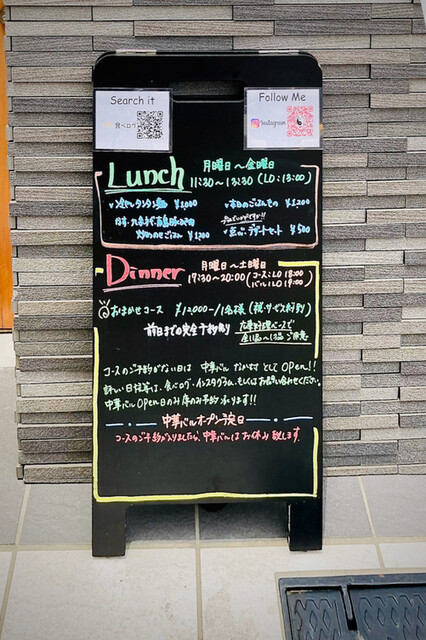 Search it
食べログ
Follow Me
Instagram
Lunch
月曜日～金曜日
11:30～13:30 (LO:13:00)
冷たいタンタン麺 ¥1,000
本日のごはんもの ¥1,200
¥1,200
デザートセット ¥500
Dinner
月曜日～土曜日
17:30～20:00 (コースLO 18:00
バルLO 19:00)
おまかせコース ¥12,000-/1名様(税・サービス料別)
前日までの完全予約制
コースのご予約がない日は 中華バル なかす として OPEN!!
詳しい日程等は、食べログ・インスタグラム、もしくはお問い合わせください。
中華バルOPEN日のみ席のみ予約承ります!!
中華バルオープン予定日
コースのご予約が入りましたら、中華バルはお休み致します。